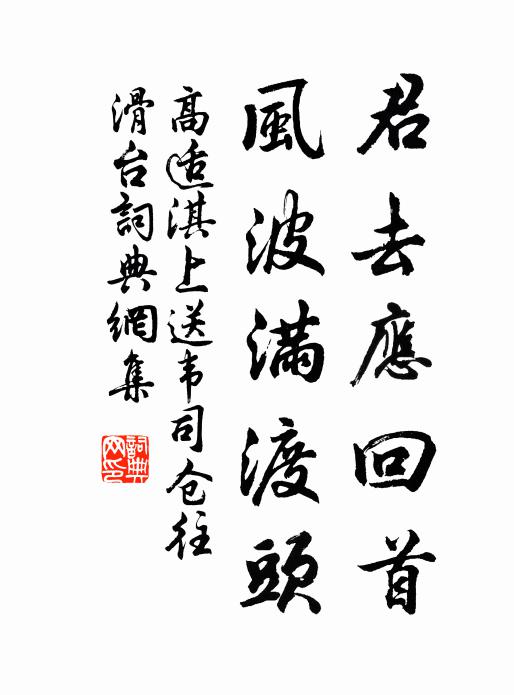 君去應回首
風波滿渡頭
高适淇上送韦司仓往
滑台詞典網集
詞典
网印